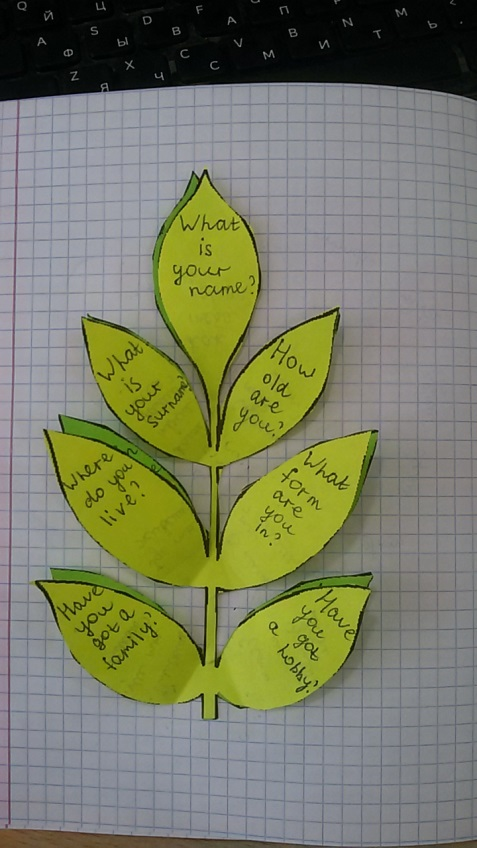 Q Й Ц S D F A П
A Ф S Ы D В F А
Z Я X Ч C С V М B И N Т M Ь
What
is
your
name?
What
is
your
surname?
How
old
are
you?
Where
do you
live?
What
form
are
you
in?
Have
you
got a
family?
Have
you got
a hobby?